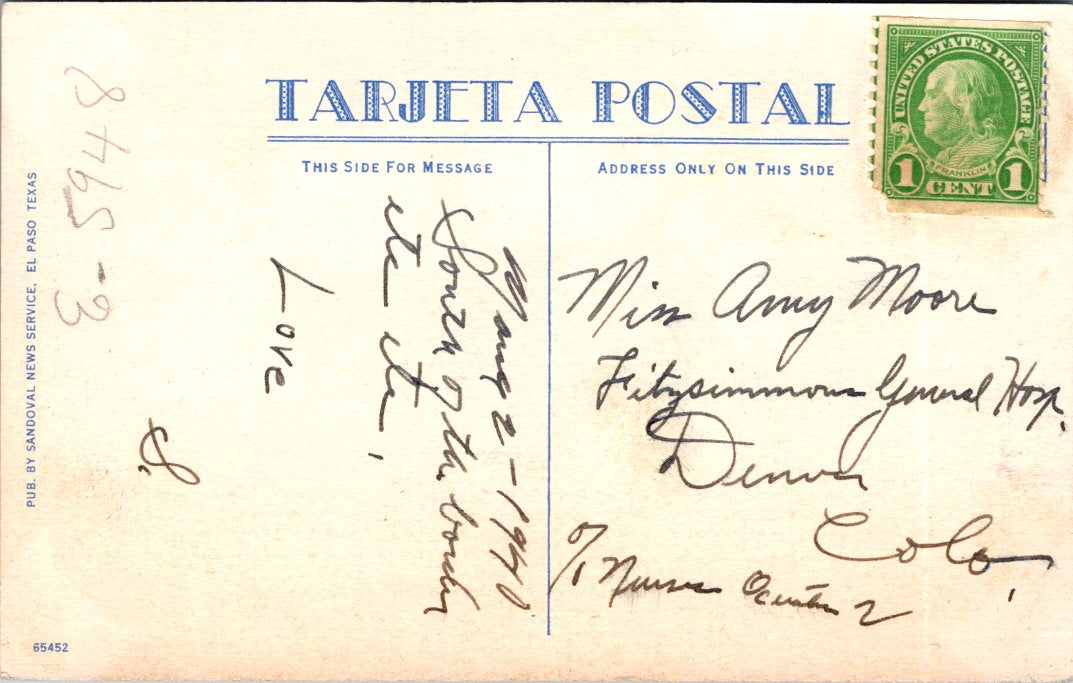 TARJETA POSTAL
THIS SIDE FOR MESSAGE
ADDRESS ONLY ON THIS SIDE
UNITED STATES POSTAGE
FRANKLIN
1 CENT 1
2 - 1940
South of the border
etc etc,
Love
S.
Miss Amy Moore
Fitzsimmons General Hosp.
Denver
Colo.
% Nurses 2
E-5948
PUB. BY SANDOVAL NEWS SERVICE, EL PASO TEXAS
65452